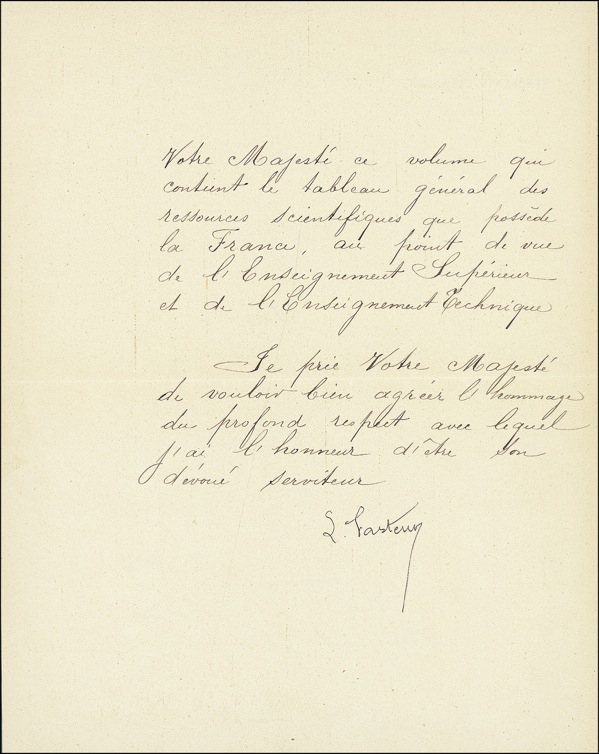 Votre Majesté ce volume qui
contient le tableau général des
ressources scientifiques que possède
la France, au point de vue
de l'Enseignement Supérieur
et de l'Enseignement Technique
Je prie Votre Majesté
de vouloir bien agréer l'hommage
du profond respect avec lequel
j'ai l'honneur d'être Son
dévoué serviteur
L. Pasteur